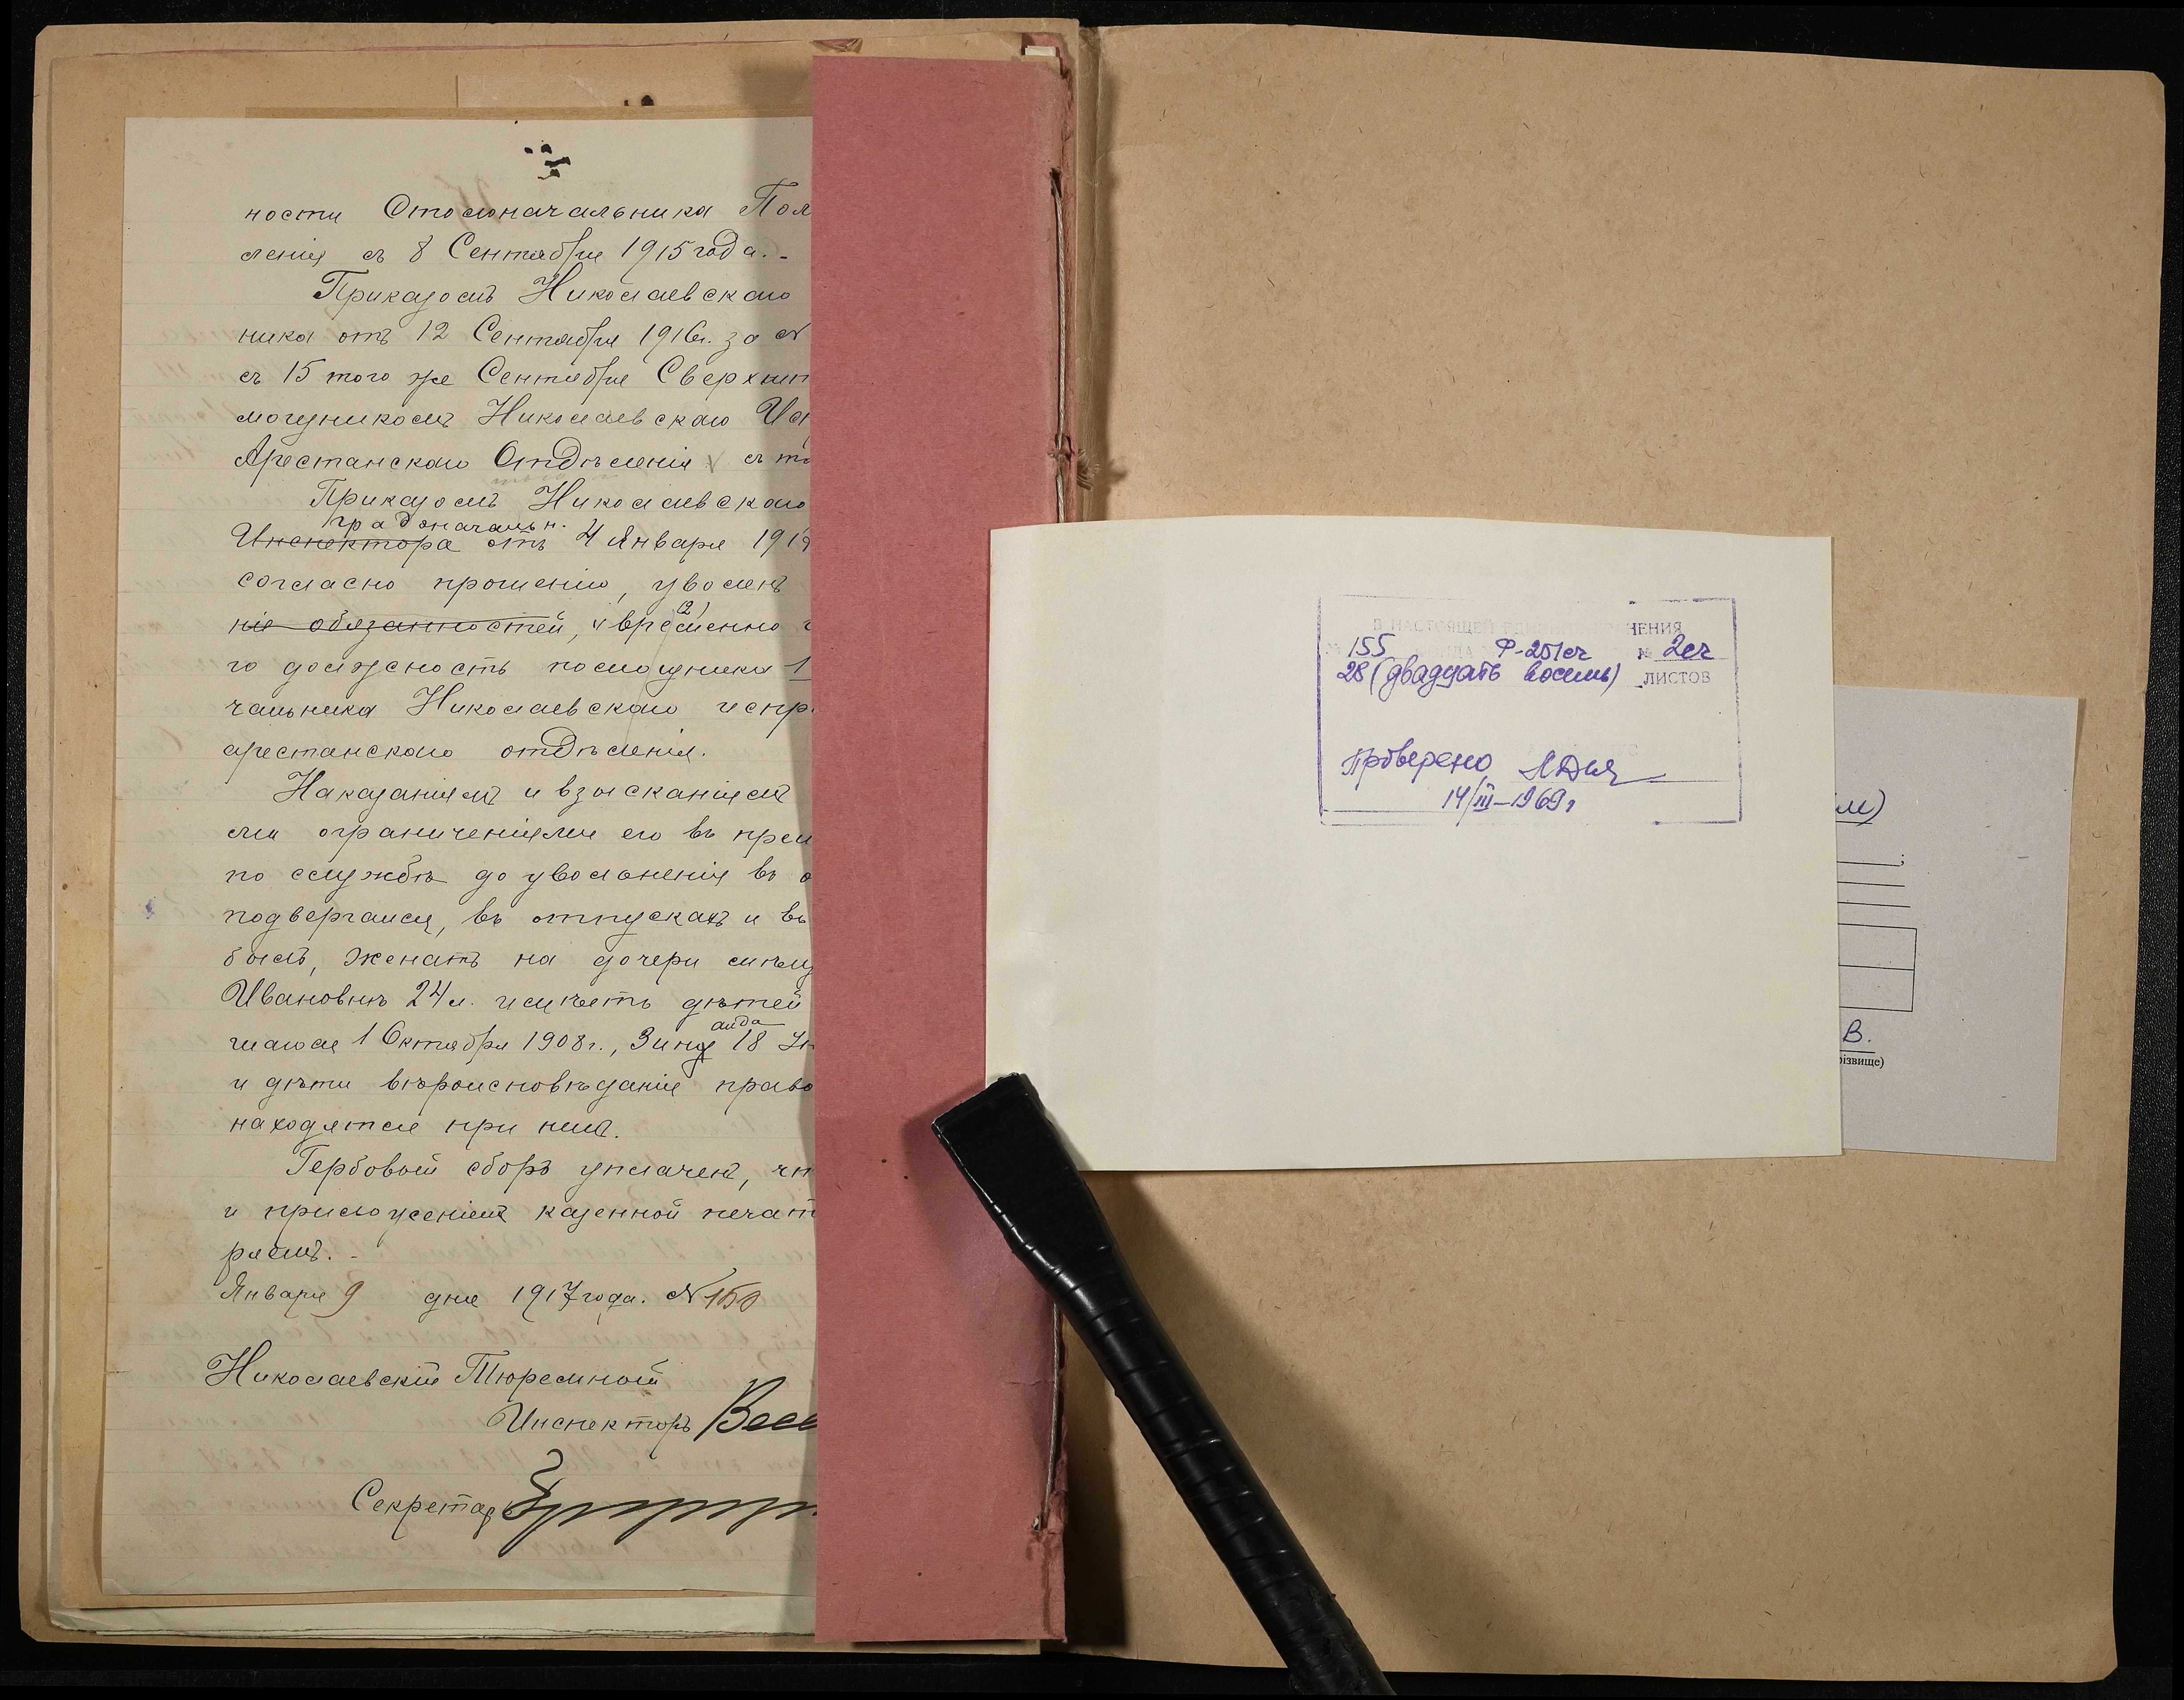 ности Столоначальника Пол
ленія съ 8 Сентября 1915 года. -
Приказомъ Николаевскаго
ника отъ 12 Сентября 1916 г. за №
съ 15 того же Сентября Сверхшт
мощникомъ Николаевскаго Ис
Арестанскаго Отдѣленія съ то
Приказомъ Николаевскаго
градоначальн.
Инспектора отъ 4 Января 191
согласно прошенію, уволенъ
ніе обязанностей, временно
го должность помощника 1
чальника Николаевскаго испр
арестанскаго отдѣленія.
Наказаніямъ и взысканіямъ
ми ограниченіями его въ преи
по службѣ до увольненія въ о
подвергался, въ отпускахъ и въ
былъ, женатъ на дочери
Ивановнѣ 24 л. имѣетъ дѣтей
шагося 1 Октября 1908 г., 18
аида
и дѣти вѣроисповѣданія право
находятся при нихъ.
Гербовый сборъ уплаченъ, чт
и приложеніемъ казенной печат
ряемъ. -
Января 9 дня 1917 года. № 150
Николаевскій Тюремный
Инспекторъ
Секретарь
В НАСТОЯЩЕЙ ЕДИНИЦЕ ХРАНЕНИЯ
155 Ф-251сч № 2сч
28 (двадцать восемь) ЛИСТОВ
Проверено
14/III-1969 г
м)
;
В.
різвище)